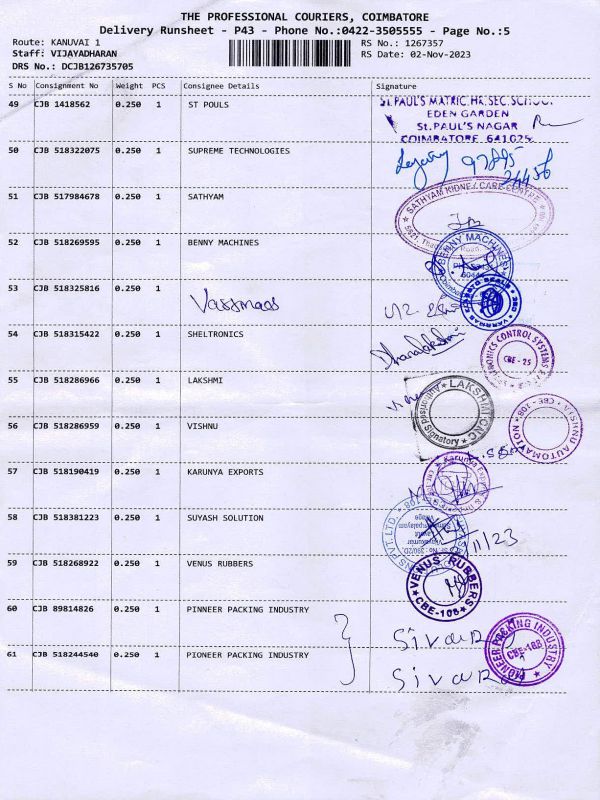 THE PROFESSIONAL COURIERS, COIMBATORE
Delivery Runsheet - P43 - Phone No.:0422-3505555 - Page No.:5
Route: KANUVAI 1 RS No.: 1267357
Staff: VIJAYADHARAN RS Date: 02-Nov-2023
DRS No.: DCJB126735705
S No Consignment No Weight PCS Consignee Details Signature
49 CJB 1418562 0.250 1 ST POULS
ST.PAUL'S MATRIC.HR.SEC.SCHOOL
EDEN GARDEN
St.PAUL'S NAGAR
COIMBATORE 641025
50 CJB 518322075 0.250 1 SUPREME TECHNOLOGIES
51 CJB 517984678 0.250 1 SATHYAM
SATHYAM KIDNEY CARE CENTRE
52 CJB 518269595 0.250 1 BENNY MACHINES
BENNY MACHINES
53 CJB 518325816 0.250 1
54 CJB 518315422 0.250 1 SHELTRONICS
Dhanalakshmi
CONTROL SYSTEMS
CBE - 25
55 CJB 518286966 0.250 1 LAKSHMI
LAKSHMI CNC
Authorised Signatory
56 CJB 518286959 0.250 1 VISHNU
VISHNU AUTOMATION
CBE - 108
57 CJB 518190419 0.250 1 KARUNYA EXPORTS
Karunya
58 CJB 518381223 0.250 1 SUYASH SOLUTION
PVT. LTD.
11/23
59 CJB 518268922 0.250 1 VENUS RUBBERS
VENUS RUBBERS
CBE-108
60 CJB 89814826 0.250 1 PINNEER PACKING INDUSTRY
PIONEER PACKING INDUSTRY
61 CJB 518244540 0.250 1 PIONEER PACKING INDUSTRY